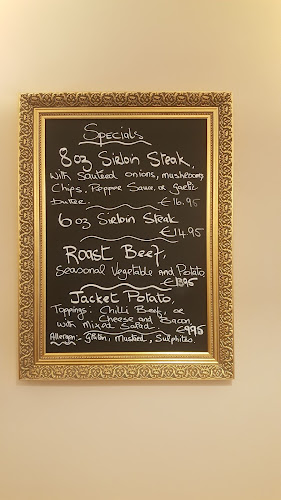 Specials
8oz Sirloin Steak,
With Sauteed onions, mushrooms
Chips, Pepper Sauce, or Garlic
butter. €16.95
6oz Sirloin Steak
€14.95
Roast Beef,
Seasonal Vegetable and Potato
€13.95
Jacket Potato,
Toppings: Chilli Beef, or
Cheese and Bacon,
with Mixed Salad €9.95
Allergen:- Gluten, Mustard, Sulphites.